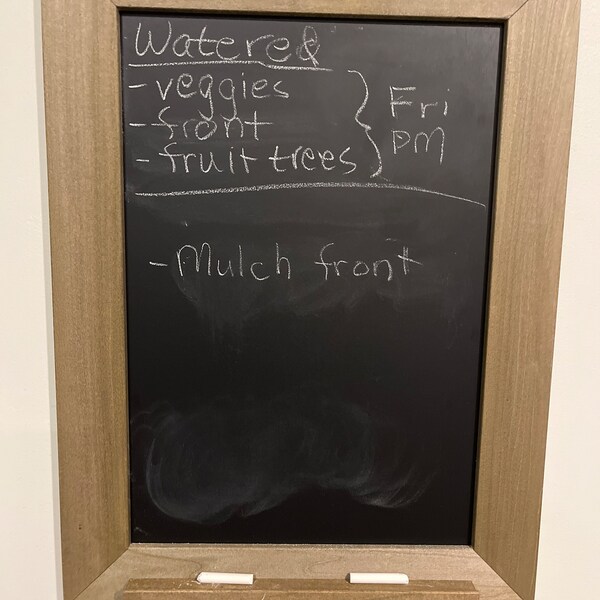 Watered
- veggies
- front
- fruit trees
Fri
PM
- Mulch front